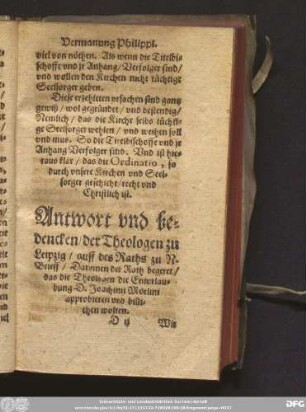 Vermanung Philippi.
viel von nöthen. Als wenn die Titelbi-
schoffe vnd jr Anhang / Verfolger sind /
vnd wollen den Kirchen nicht tüchtige
Seelsorger geben.
Diese erzehleten vrsachen sind gantz
gewiß / wol gegründet / vnd bestendig /
Nemlich / das die Kirche selbs tüchti-
ge Seelsorger wehlen / vnd weihen soll
vnd mus. So die Titelbischoffe vnd jr
Anhang Verfolger sind. Vnd ist hie-
raus klar / das die Ordinatio, so
durch vnsere Kirchen vnd Seel-
sorger geschicht / recht vnd
Christlich ist.
Antwort vnd be-
dencken / der Theologen zu
Leipzig / auff des Raths zu N-
Brieff / Darinnen der Rath begeret /
das die Theologen die Enterlau-
bung D. Joachimi Mörlini
approbieren vnd billi-
chen wolten.
D ij Wir